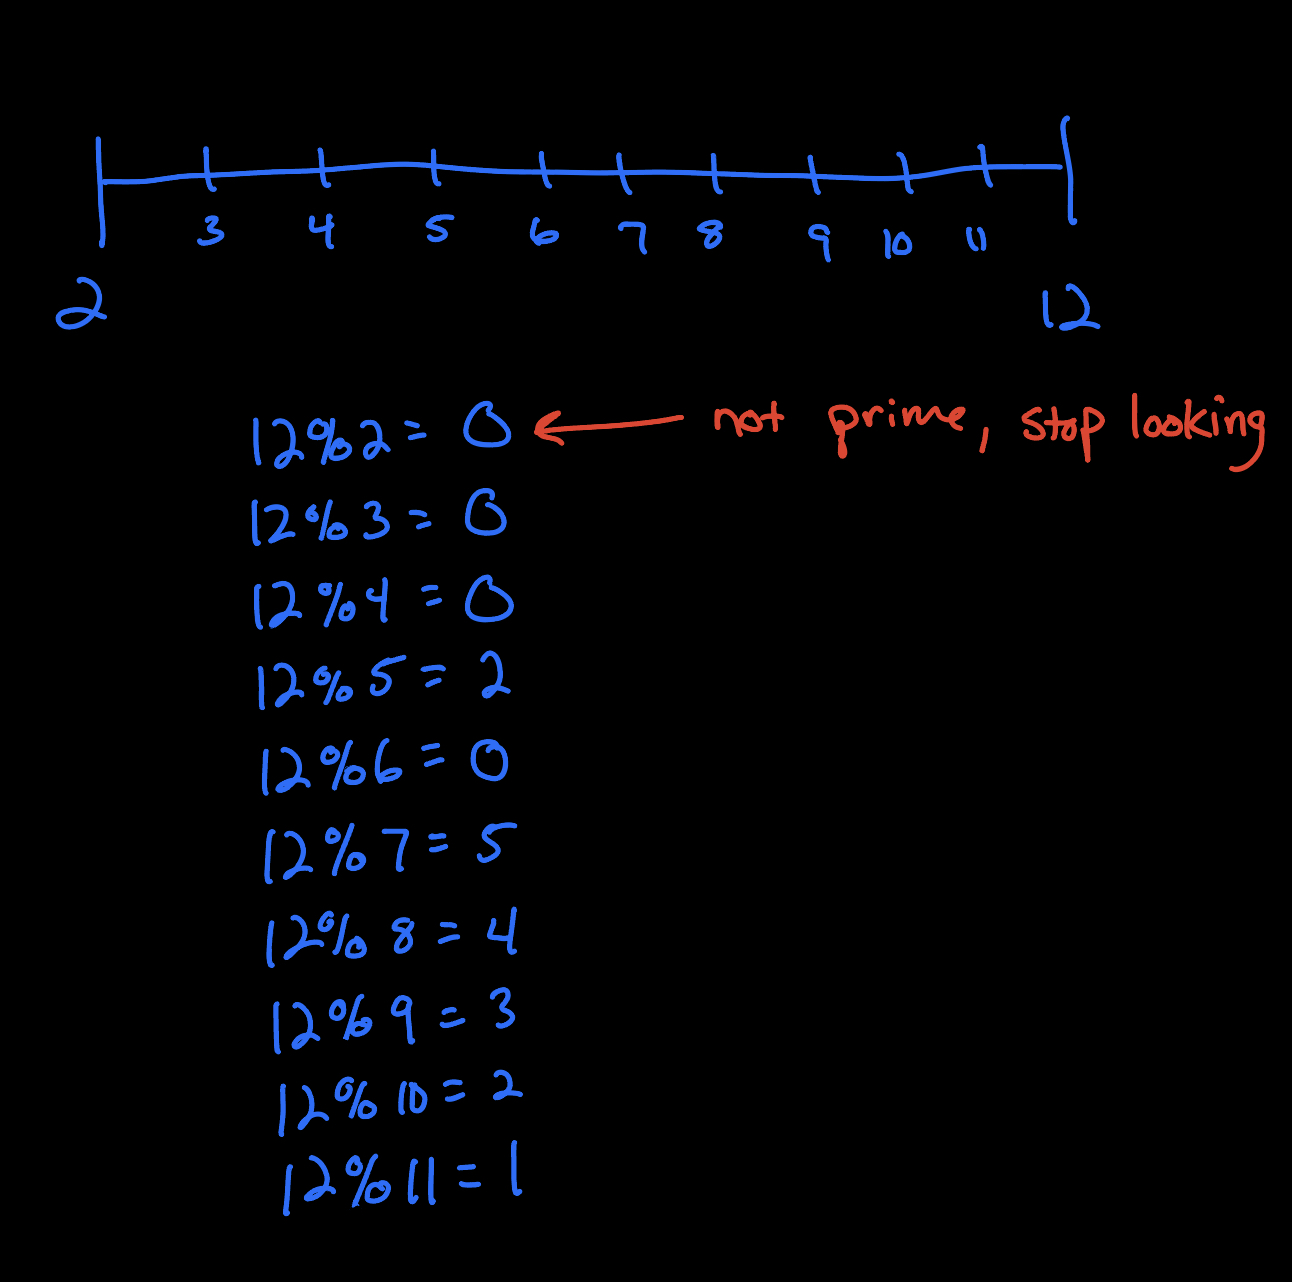 3 4 5 6 7 8 9 10 11
2 12
12%2 = 0 ← not prime, stop looking
12%3 = 0
12%4 = 0
12%5 = 2
12%6 = 0
12%7 = 5
12%8 = 4
12%9 = 3
12%10 = 2
12%11 = 1